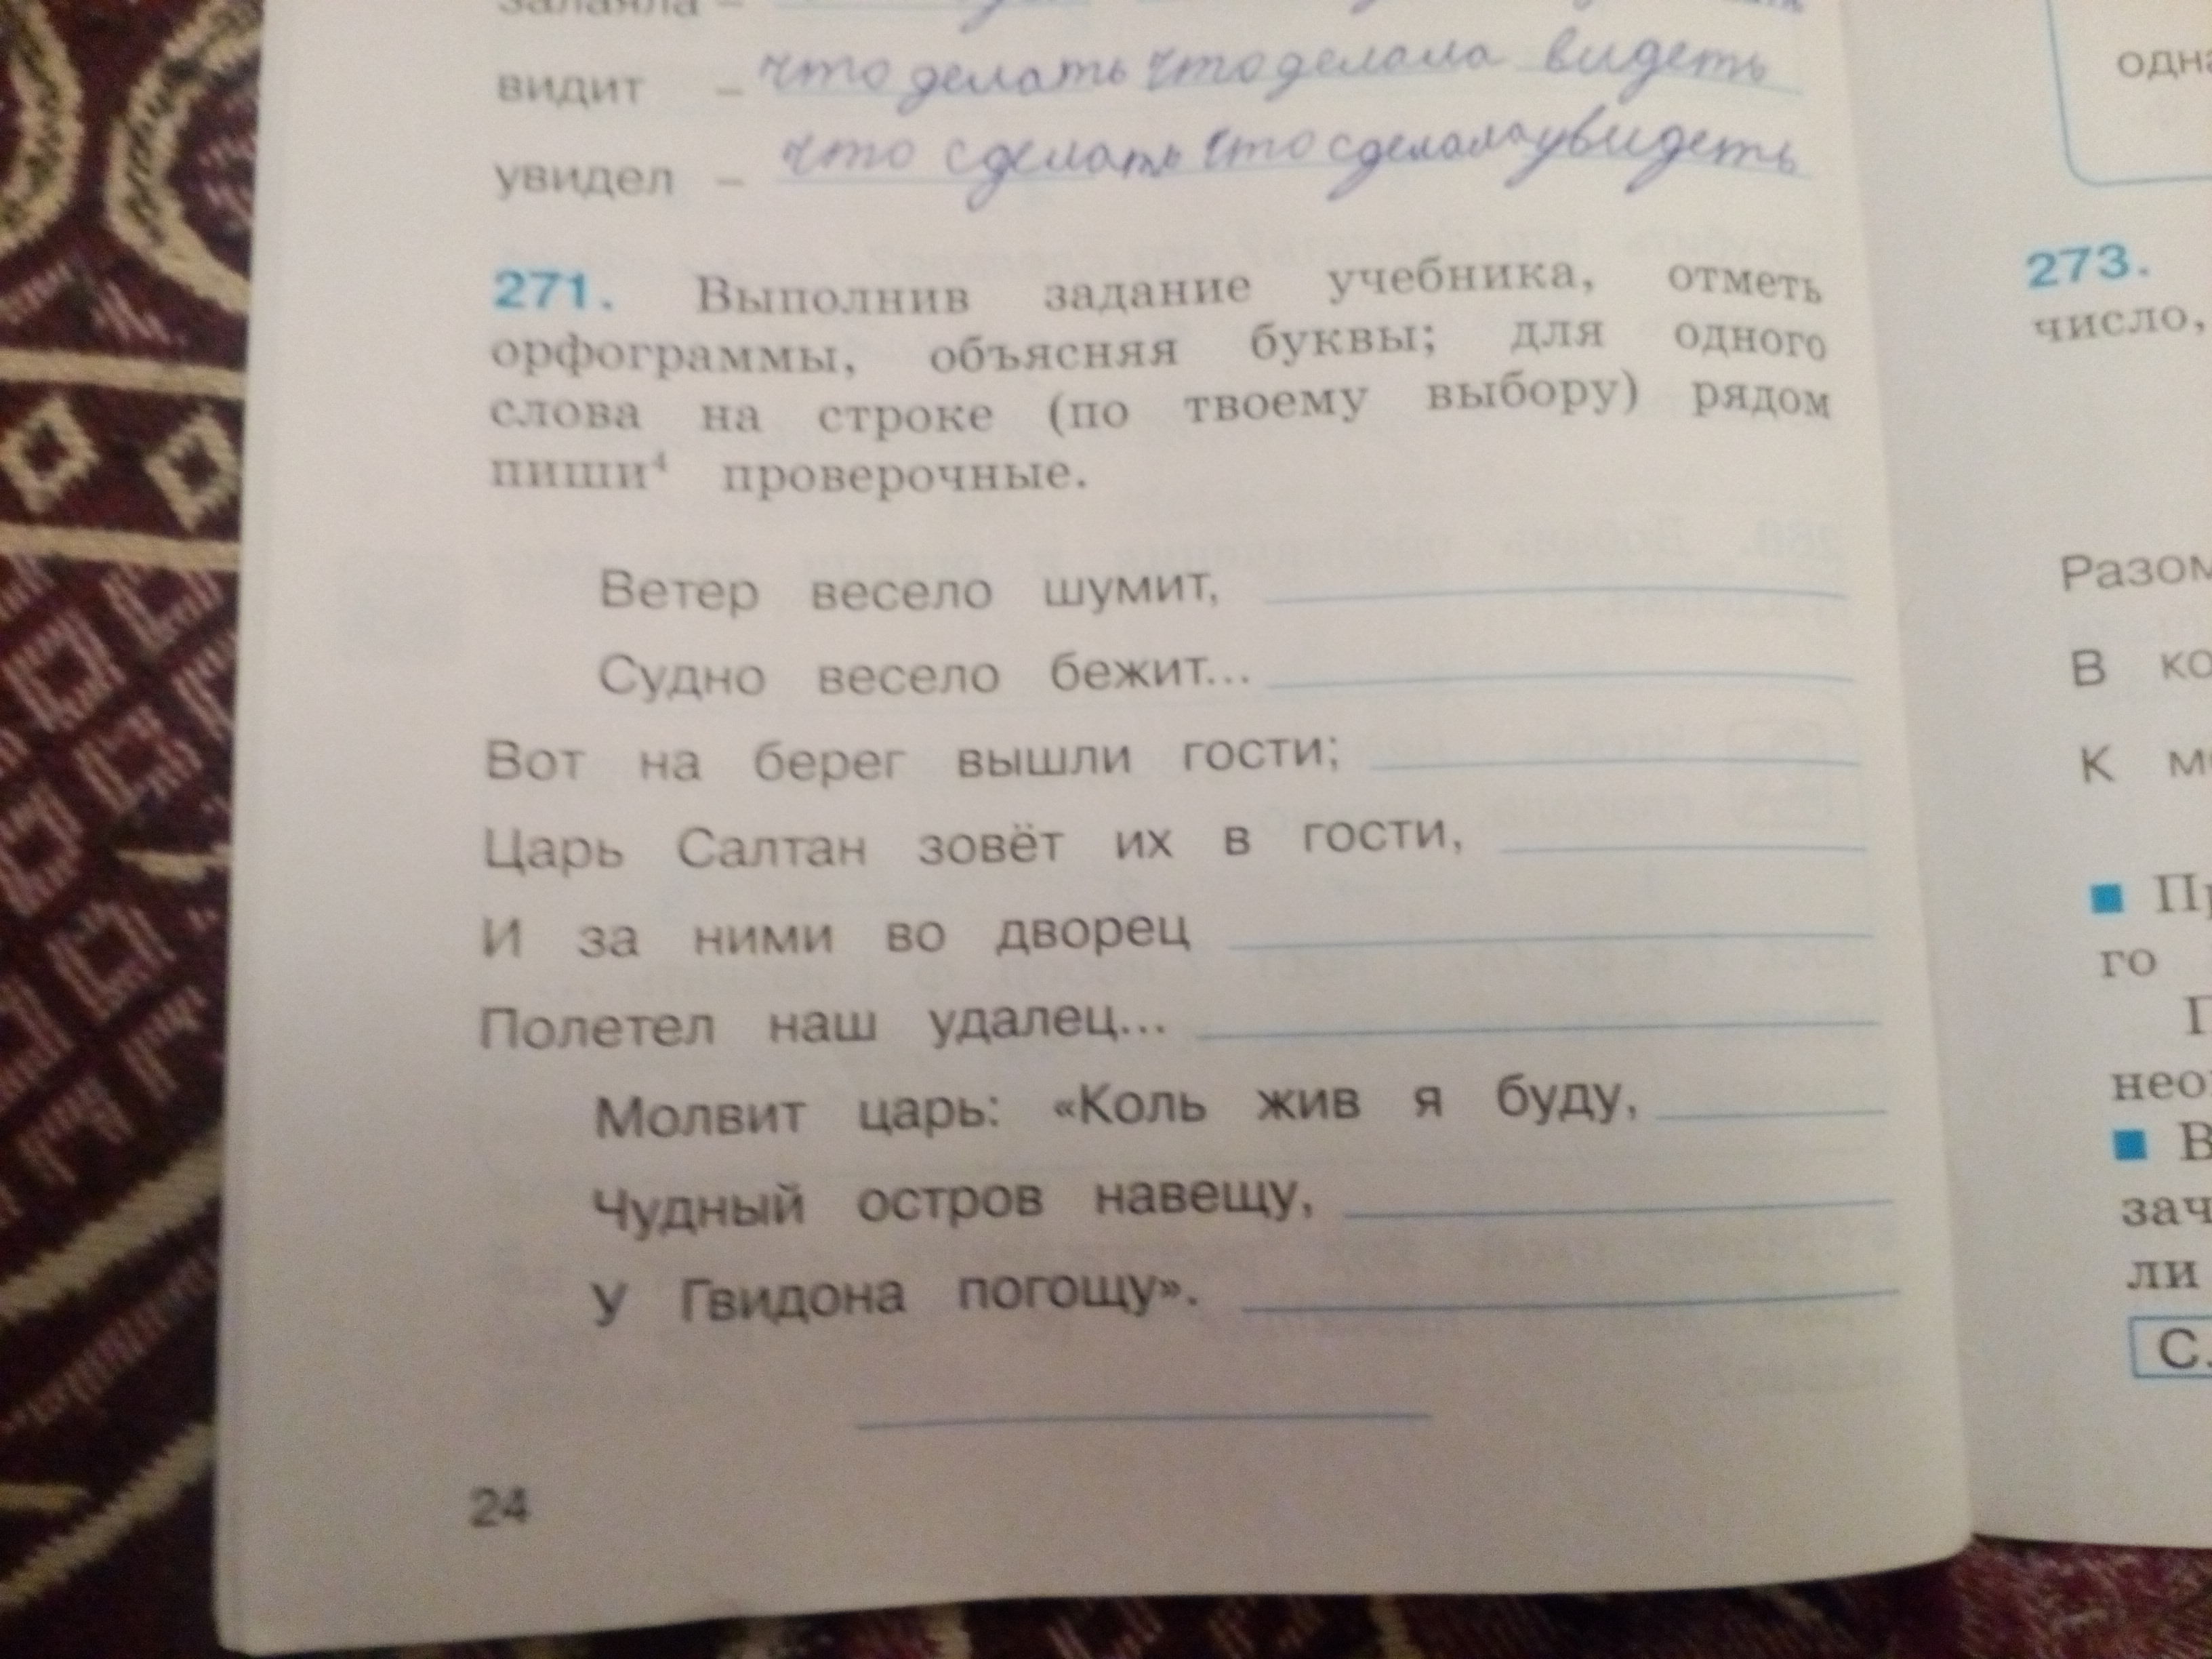 залаяла –
видит – что делать что делала видеть
увидел – что сделать что сделала увидеть
271. Выполнив задание учебника, отметь
орфограммы, объясняя буквы; для одного
слова на строке (по твоему выбору) рядом
пиши⁴ проверочные.
Ветер весело шумит,
Судно весело бежит...
Вот на берег вышли гости;
Царь Салтан зовёт их в гости,
И за ними во дворец
Полетел наш удалец...
Молвит царь: «Коль жив я буду,
Чудный остров навещу,
У Гвидона погощу».
24
273.
число,
Разом
В ко
К м
■ Пр
го
нео
■ В
зач
ли
С.